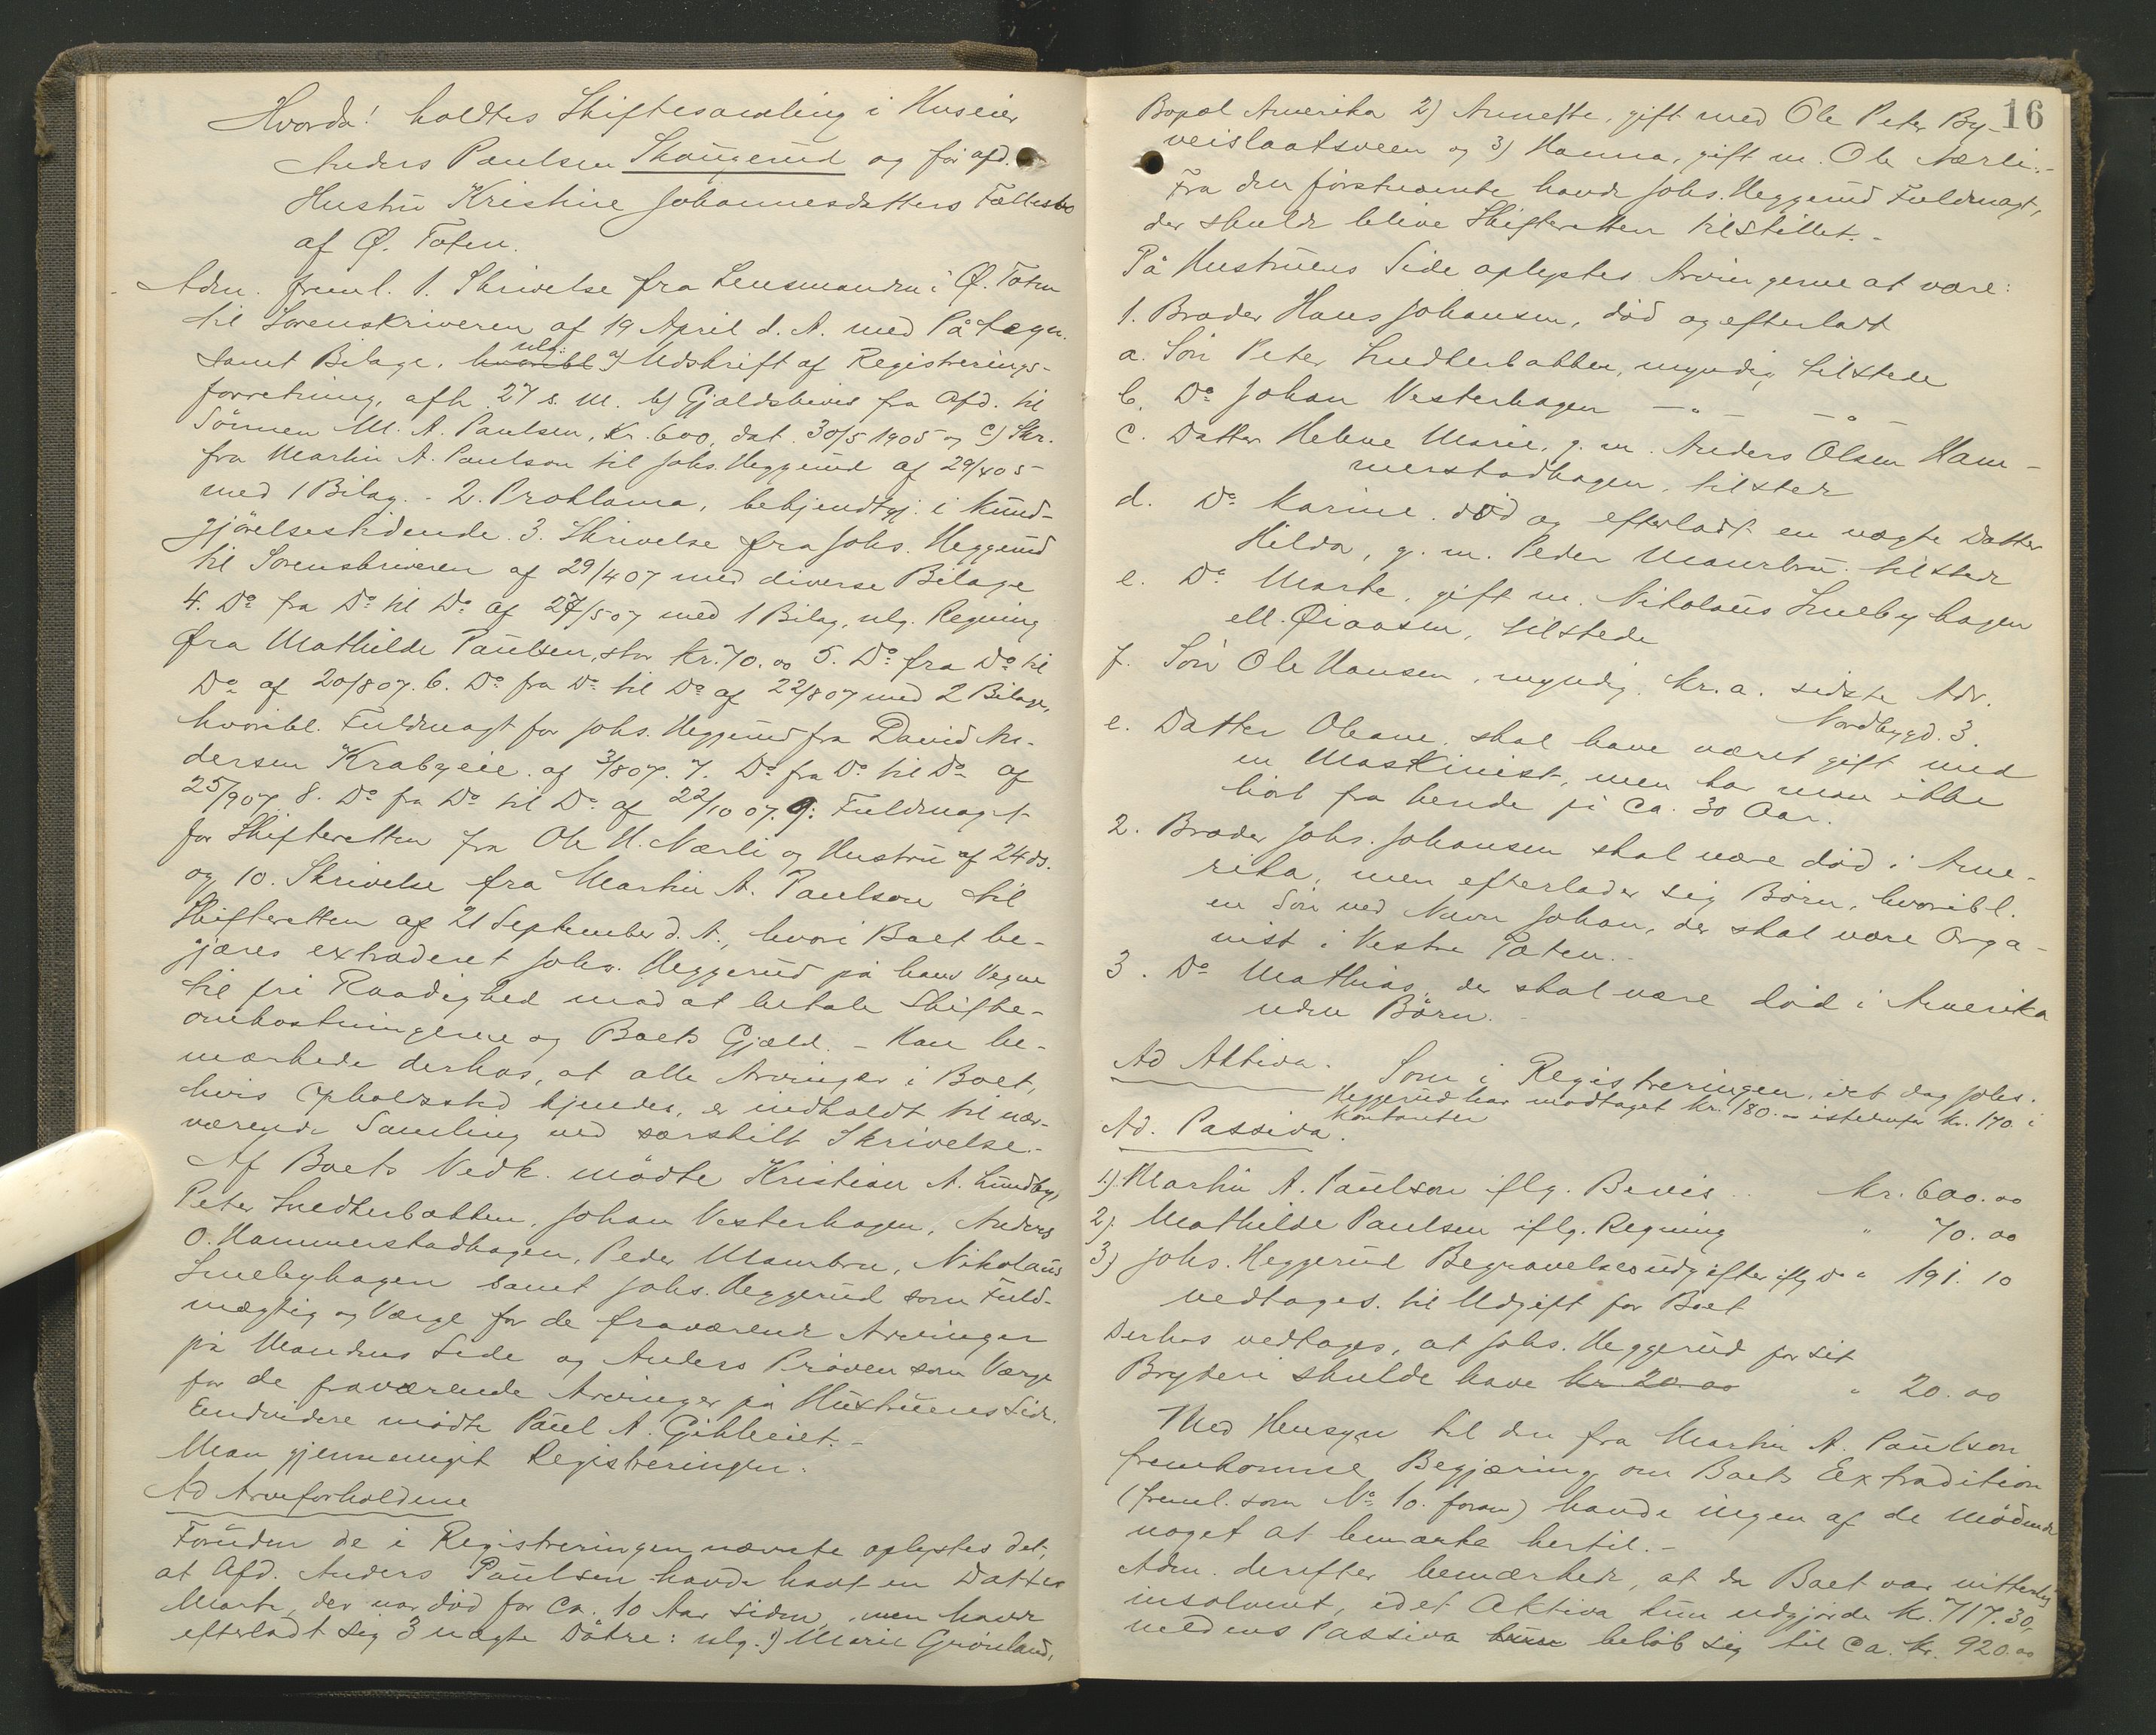 Hvorda! holdtes Skiftesamling i Huseier
Anders Paulsen Skougerud og før afd.
Hustru Kristine Johannesdatters Fællesbo
af Ø. Toten.
Adm. freml. 1. Skrivelse fra Lensmanden i Ø. Toten
til Sorenskriveren af 19 April d. A. med Påtegn.
samt Bilage, hvoribl nlg: a) Udskrift af Registrerings-
forretning, afh. 27 s. M. b) Gjældsbevis fra Afd. til
Sønnen M. A. Paulsen, Kr. 600, dat. 30/5 1905 og c) Skr.
fra Martin A. Paulson til Johs. Heggerud af 29/4 05
med 1 Bilag. - 2. Proklama, bekjendtgj. i Kund-
gjørelsestidende. 3. Skrivelse fra Johs. Heggerud
til Sorenskriveren af 29/4 07 med diverse Bilage
4. Do fra Do til Do af 27/5 07 med 1 Bilag, nlg. Regning
fra Mathilde Paulsen, stor Kr. 70.00 5. Do fra Do til
Do af 20/8 07. 6. Do fra Do til Do af 22/8 07 med 2 Bilage,
hvoribl. Fuldmagt for Johs. Heggerud fra David An-
dersen Krabyeie af 3/8 07. 7. Do fra Do til Do af
25/9 07 8. Do fra Do til Do af 22/10 07. 9: Fuldmagt
for Skifteretten fra Ole H. Nærli og Hustru af 24 ds.
og 10. Skrivelse fra Martin A. Paulson til
Skifteretten af 21 September d. A., hvori Boet be-
gjæres extraderet Johs. Heggerud på hans Vegne
til fri Raadighed mod at betale Skifte-
omkostningerne og Boets Gjæld. - Han be-
mærkede derhos, at alle Arvinger i Boet,
hvis Opholdssted kjendes, er indkaldt til nær-
værende Samling ved særskilt Skrivelse.-
Af Boets Vedk. mødte Kristian A. Lundby,
Peter Smedhusbakken, Johan Vesterhagen, Anders
O. Hammerstadhagen, Peder Maurbru, Nikolaus
Smebyhagen samt Johs. Heggerud som Fuld-
mægtig og Værge for de fraværende Arvinger
på Mandens Side og Anders Prøven som Værge
for de fraværende Arvinger på Hustruens Side.
Endvidere mødte Paul A. Gihleeiet.-
Man gjennemgik Registreringen.
Ad Arveforholdene
Foruden de i Registreringen nævnte oplystes det,
at Afd. Anders Paulsen havde havt en Datter
Marte, der var død for Ca. 10 Aar siden, men havde
efterladt sig 3 uægte Døtre: nlg. 1) Marie Grønland,
16
Bopæl Amerika 2) Annette, gift med Ole Peter By-
veislaatsveen og 3) Hanna, gift m. Ole Nærli.-
Fra den førstnævnte havde Johs. Heggerud Fuldmagt,
der skulde blive Skifteretten tilstillet.-
På Hustruens Side oplystes Arvingerne at være:
1. Broder Hans Johansen, død og efterladt
a. Søn Peter Smedhusbakken, myndig, tilstede
b. Do Johan Vesterhagen - " - - " -
c. Datter Helene Marie, g. m. Anders Olsen Ham-
merstadhagen, tilstede
d. Do Karine, død og efterladt en uægte Datter
Hilda, g. m. Peder Maurbru, tilstede
e. Do Marte, gift m. Nikolaus Smebyhagen
ell. Øiaasen, tilstede
f. Søn Ole Hansen, myndig. Kr.a. sidste Adr.
Nordbygd. 3.
e. Datter Oleane, skal have været gift med
en Maskinist, men har man ikke
hørt fra hende på Ca. 30 Aar.
2. Broder Johs. Johansen skal være død i Ame-
rika, men efterlader sig Børn, hvoribl.
en Søn ved Navn Johan, der skal være Orga-
nist i Vestre Toten.
3. Do Mathias, der skal være død i Amerika
uden Børn.
Ad Aktiva. Som i Registreringen, idet dog Johs.
Heggerud har modtaget Kr. 180.- istedenfor Kr. 170 i
Kontanter
Ad. Passiva.
1). Martin A. Paulson iflg. Bevis .. Kr. 600.00
2). Mathilde Paulsen iflg. Regning " 70.00
3) Johs. Heggerud Begravelsesudgifter iflg. Do " 191.10
vedtages til Udgift for Boet
Derhos vedtages, at Johs. Heggerud for sit
Bryderi skulde have Kr 20.00 " 20.00
Med Hensyn til den fra Martin A. Paulson
fremkomne Begjæring om Boets Extradition
(freml. som No 10. foran) havde ingen af de Mødende
noget at bemærke hertil.-
Adm. derefter bemærkede, at da Boet var vitterlig
insolvent, idet Aktiva kun udgjorde Kr. 717.30,
medens Passiva kun beløb sig til Ca. Kr. 920.00